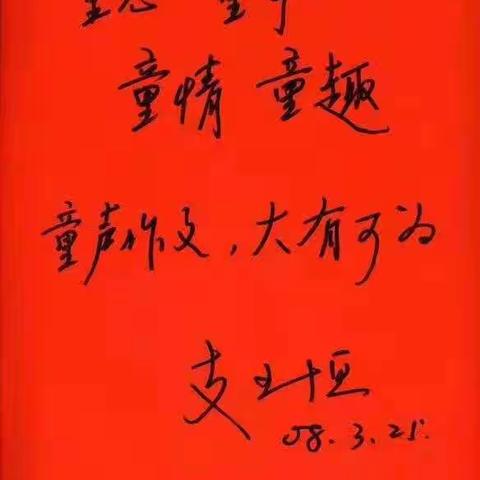 童情 童趣
童声作文，大有可为
支玉恒
08.3.25.